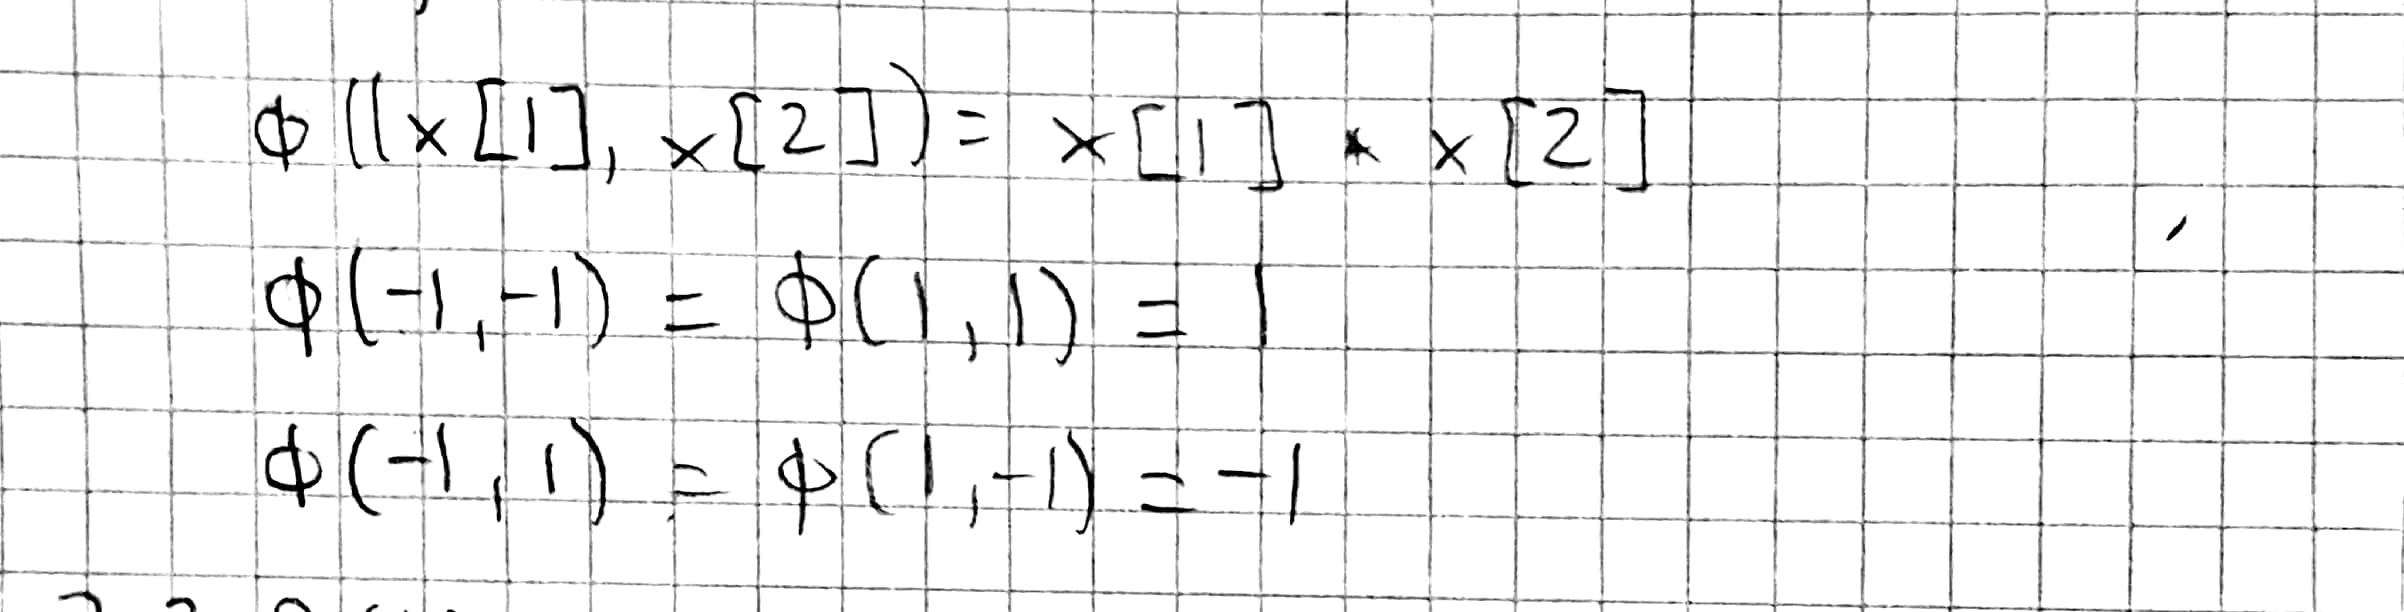 ϕ((x[1], x[2]) = x[1] * x[2]
ϕ(-1, -1) = ϕ(1, 1) = 1
ϕ(-1, 1) = ϕ(1, -1) = -1